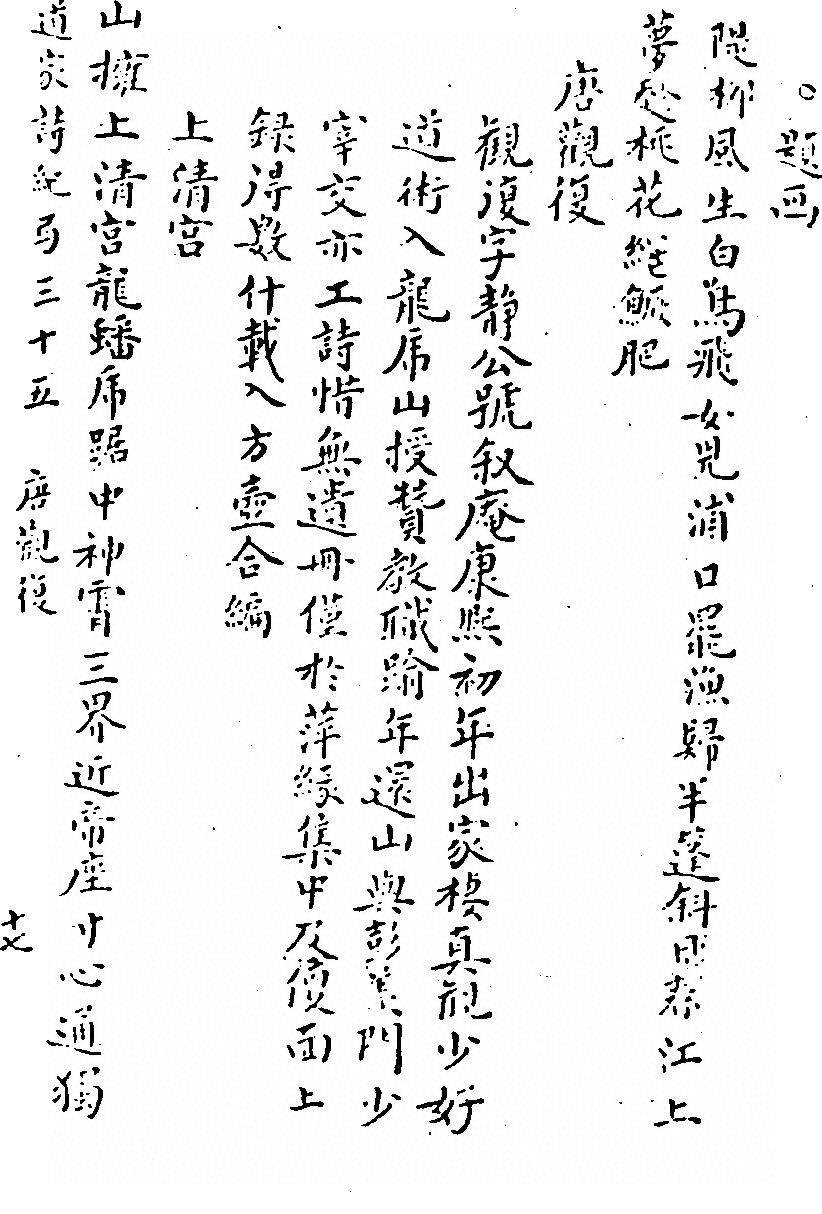 ○題画
隄柳風生白鳥飛女兒浦口罷漁歸半篷斜日春江上
夢遶桃花鱖肥
唐觀復
觀復字靜公號叙庵康熙初年出家棲真觀少好
道術入龍虎山授贊教職踰年還山與彭門少
宰交亦工詩惜無遺冊僅於萍緣集中及便面上
錄得數什載入方壺合編
上清宮
山擁上清宮龍蟠虎踞中神霄三界近帝座寸心通獨
道家詩紀弓三十五 唐觀復
十七